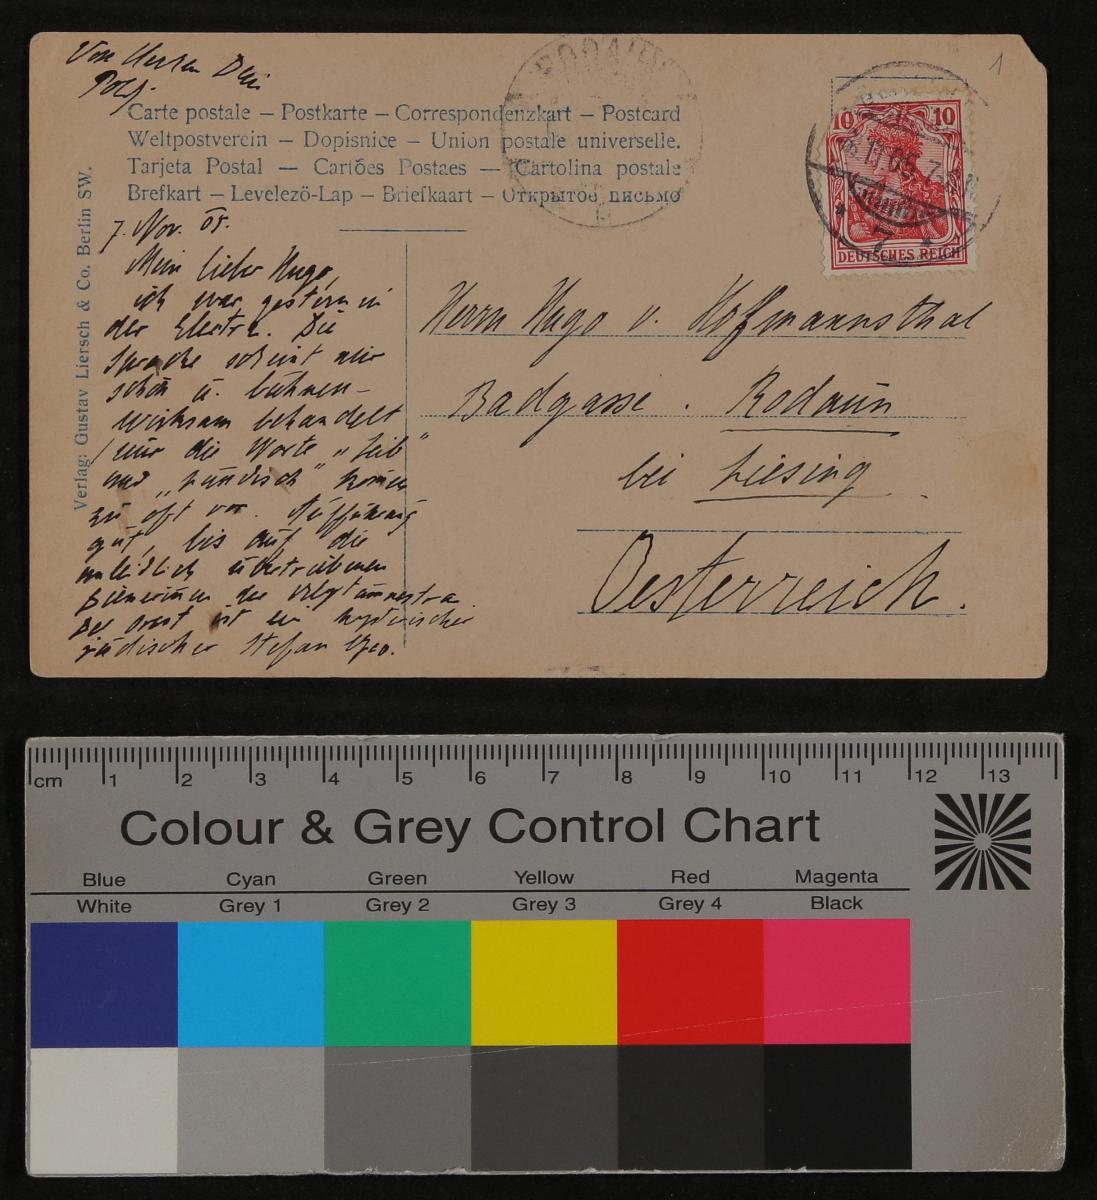 Von Herzen Dein
Poldy.
Carte postale – Postkarte – Correspondenzkart – Postcard
Weltpostverein – Dopisnice – Union postale universelle.
Tarjeta Postal – Cartões Postaes – Cartolina postale
Brefkart – Levelezö-Lap – Briefkaart – Открытое письмо
Verlag: Gustav Liersch & Co. Berlin SW.
10 10
DEUTSCHES REICH
1
7. Nov. 05.
Mein lieber Hugo,
ich war gestern in
der Electra. Die
Sprache scheint mir
schön u. bühnen-
wirksam behandelt
nur die Worte „Leib"
und „hündisch" kommen
zu oft vor. Aufführung
gut, bis auf die
unleidlich übertriebenen
Dienerinnen der Clytämnestra
Der Orest ist ein hysterischer
jüdischer Stefan Geo.
Herrn Hugo v. Hofmannsthal
Badgasse. Rodaun
bei Liesing
Oesterreich.
cm 1 2 3 4 5 6 7 8 9 10 11 12 13
Colour & Grey Control Chart
Blue Cyan Green Yellow Red Magenta
White Grey 1 Grey 2 Grey 3 Grey 4 Black